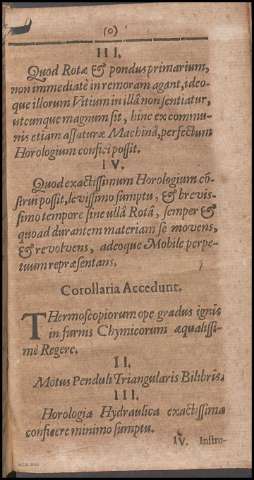 (0)
III.
Quod Rotæ & pondus primarium,
non immediatè in remoram agant, ideo-
que illorum Vitium in illâ non sentiatur,
utcunque magnum sit, hinc ex commu-
nis etiam assaturæ Machinâ, perfectum
Horologium confici possit.
IV.
Quod exactissimum Horologium cō-
strui possit, levissimo sumptu, & brevis-
simo tempore sine ullâ Rotâ, semper &
quoad durantem materiam sè movens,
& revolvens, adeoque Mobile perpe-
tuum repræsentans.
Corollaria Accedunt.
THermoscopiorum ope gradus ignis
in furnis Chymicorum æqualissi-
mè Regere.
II.
Motus Penduli Triangularis Bilibris.
III.
Horologia Hydraulica exactissima
conficere minimo sumptu.
IV. Instru-